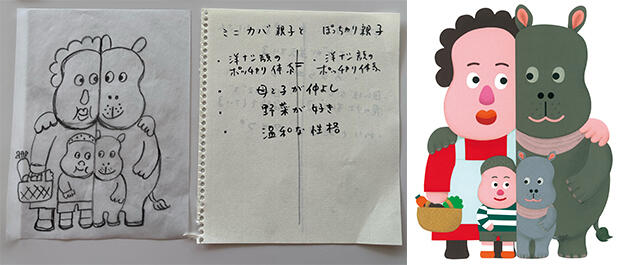 ミニカバ親子と ぽっちゃり親子
・洋ナシ顔のポッチャリ体系 = ・洋ナシ顔のポッチャリ体系
・母と子が仲よし
・野菜が好き
・温和な性格